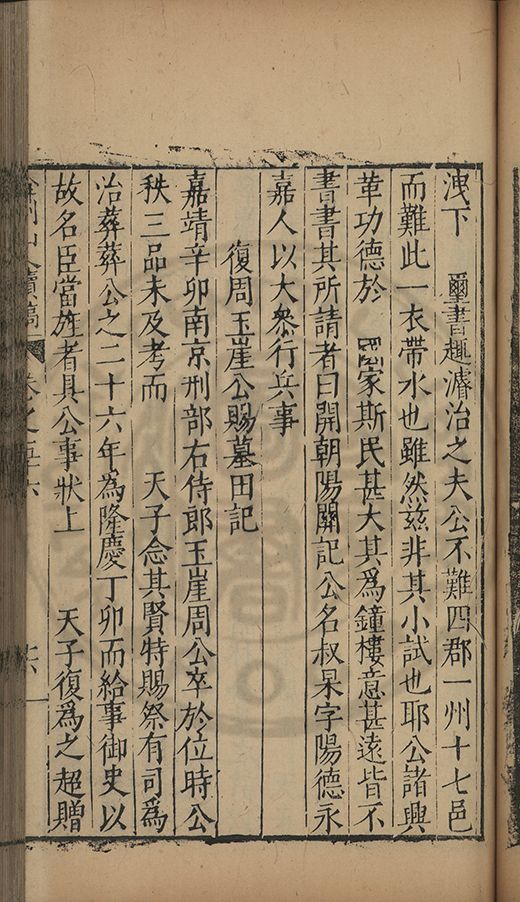 洩下　璽書趣濬治之夫公不難四郡一州十七邑
而難此一衣帶水也雖然兹非其小試也耶公諸興
革功德於　國家斯民甚大其爲鐘樓意甚遠皆不
書書其所請者曰開朝陽關記公名叔杲字陽德永
嘉人以大叅行兵事
復周玉崖公賜墓田記
嘉靖辛卯南京刑部右侍郎玉崖周公卒於位時公
秩三品未及考而　天子念其賢特賜祭有司爲
治葬葬公之二十六年為隆慶丁卯而給事御史以
故名臣當旌者具公事狀上　天子復爲之超贈
山人續稿　卷之五十六　十六